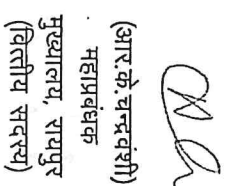 (आर.के.चन्द्रवंशी)
महाप्रबंधक
मुख्यालय, रायपुर
(वित्तीय सदस्य)